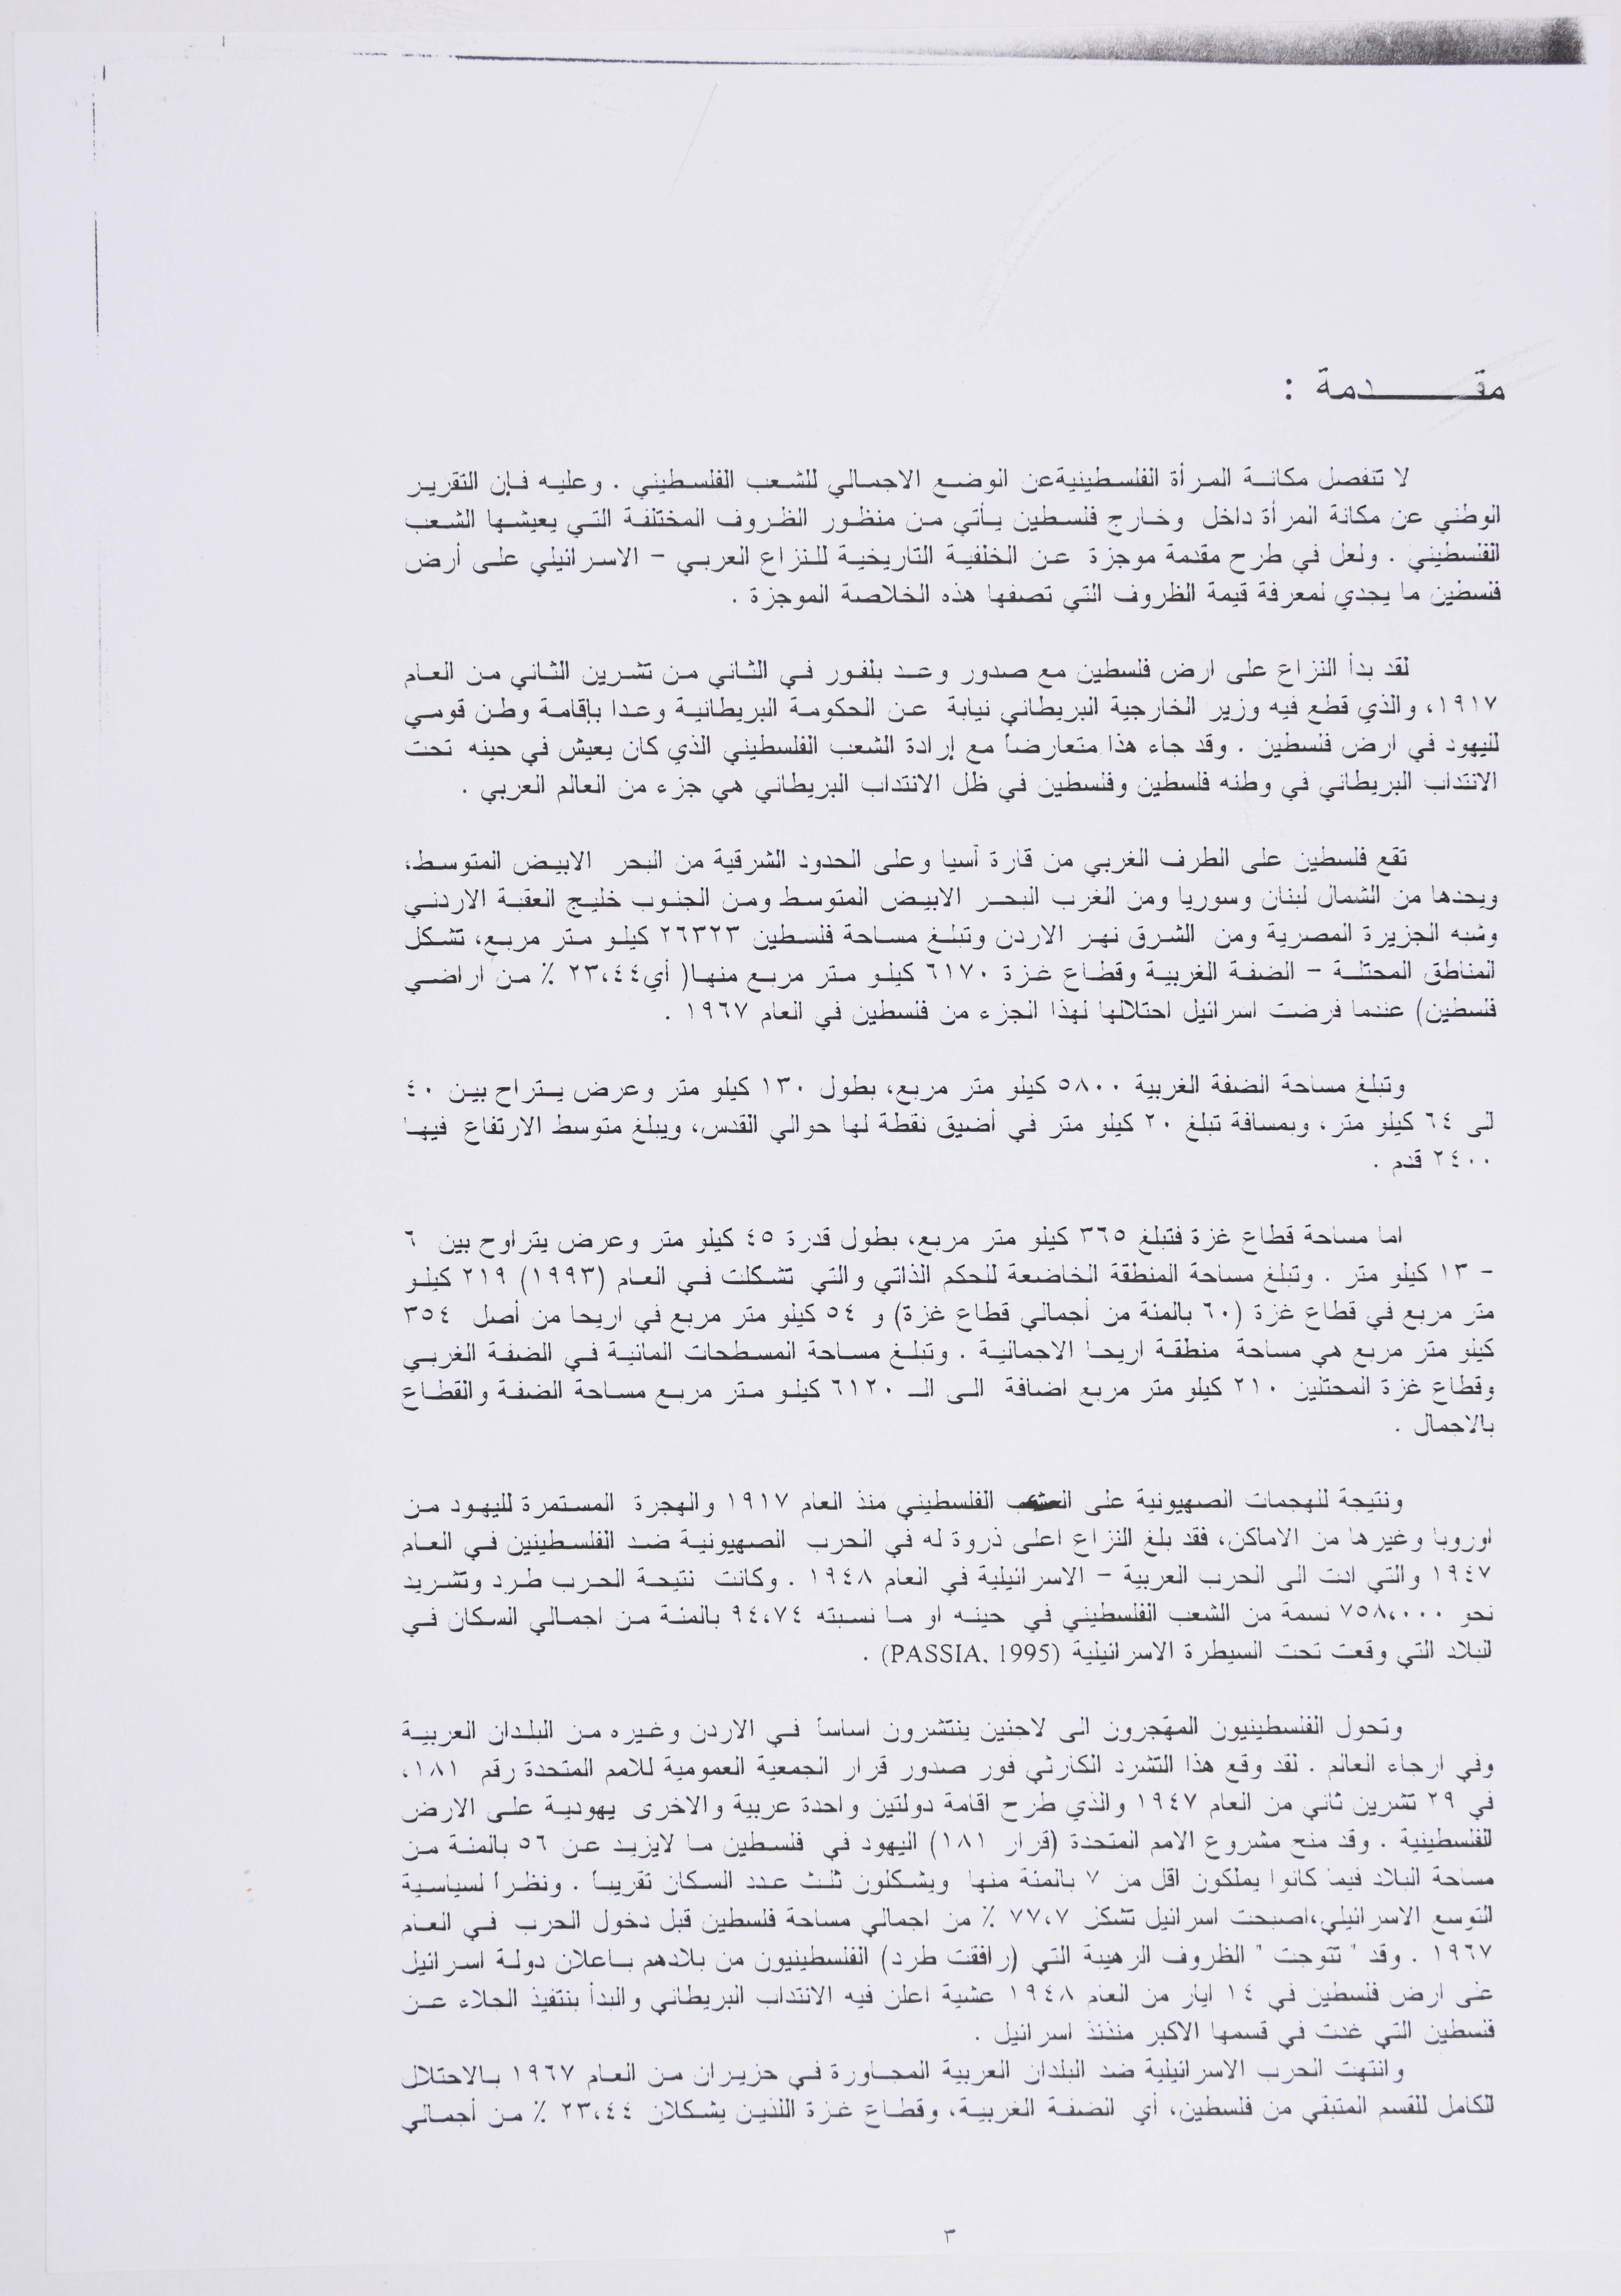 مقـــــدمة :
لا تنفصل مكانة المرأة الفلسطينية عن الوضع الاجمالي للشعب الفلسطيني . وعليه فإن التقرير
الوطني عن مكانة المرأة داخل وخارج فلسطين يأتي من منظور الظروف المختلفة التي يعيشها الشعب
الفلسطيني . ولعل في طرح مقدمة موجزة عن الخلفية التاريخية للنزاع العربي - الاسرائيلي على أرض
فلسطين ما يجدي لمعرفة قيمة الظروف التي تصفها هذه الخلاصة الموجزة .
لقد بدأ النزاع على ارض فلسطين مع صدور وعد بلفور في الثاني من تشرين الثاني من العام
١٩١٧، والذي قطع فيه وزير الخارجية البريطاني نيابة عن الحكومة البريطانية وعدا بإقامة وطن قومي
لليهود في ارض فلسطين . وقد جاء هذا متعارضاً مع إرادة الشعب الفلسطيني الذي كان يعيش في حينه تحت
الانتداب البريطاني في وطنه فلسطين وفلسطين في ظل الانتداب البريطاني هي جزء من العالم العربي .
تقع فلسطين على الطرف الغربي من قارة آسيا وعلى الحدود الشرقية من البحر الابيض المتوسط،
ويحدها من الشمال لبنان وسوريا ومن الغرب البحر الابيض المتوسط ومن الجنوب خليج العقبة الاردني
وشبه الجزيرة المصرية ومن الشرق نهر الاردن وتبلغ مساحة فلسطين ٢٦٣٢٣ كيلو متر مربع، تشكل
المناطق المحتلة - الضفة الغربية وقطاع غزة ٦١٧٠ كيلو متر مربع منها( أي٢٣،٤٤ ٪ من اراضي
فلسطين) عندما فرضت اسرائيل احتلالها لهذا الجزء من فلسطين في العام ١٩٦٧ .
وتبلغ مساحة الضفة الغربية ٥٨٠٠ كيلو متر مربع، بطول ١٣٠ كيلو متر وعرض يتراح بين ٤٠
الى ٦٤ كيلو متر، وبمسافة تبلغ ٢٠ كيلو متر في أضيق نقطة لها حوالي القدس، ويبلغ متوسط الارتفاع فيها
٢٤٠٠ قدم .
اما مساحة قطاع غزة فتبلغ ٣٦٥ كيلو متر مربع، بطول قدرة ٤٥ كيلو متر وعرض يتراوح بين ٦
- ١٣ كيلو متر . وتبلغ مساحة المنطقة الخاضعة للحكم الذاتي والتي تشكلت في العام (١٩٩٣) ٢١٩ كيلو
متر مربع في قطاع غزة (٦٠ بالمئة من أجمالي قطاع غزة) و ٥٤ كيلو متر مربع في اريحا من أصل ٣٥٤
كيلو متر مربع هي مساحة منطقة اريحا الاجمالية . وتبلغ مساحة المسطحات المائية في الضفة الغربي
وقطاع غزة المحتلين ٢١٠ كيلو متر مربع اضافة الى الـ ٦١٢٠ كيلو متر مربع مساحة الضفة والقطاع
بالاجمال .
ونتيجة للهجمات الصهيونية على الشعب الفلسطيني منذ العام ١٩١٧ والهجرة المستمرة لليهود من
اوروبا وغيرها من الاماكن، فقد بلغ النزاع اعلى ذروة له في الحرب الصهيونية ضد الفلسطينين في العام
١٩٤٧ والتي ادت الى الحرب العربية - الاسرائيلية في العام ١٩٤٨ . وكانت نتيحة الحرب طرد وتشريد
نحو ٧٥٨،٠٠٠ نسمة من الشعب الفلسطيني في حينه او ما نسبته ٩٤،٧٤ بالمئة من اجمالي السكان في
البلاد التي وقعت تحت السيطرة الاسرائيلية (PASSIA, 1995) .
وتحول الفلسطينيون المهّجرون الى لاجئين ينتشرون اساساً في الاردن وغيره من البلدان العربية
وفي ارجاء العالم . لقد وقع هذا التشرد الكارثي فور صدور قرار الجمعية العمومية للامم المتحدة رقم ١٨١،
في ٢٩ تشرين ثاني من العام ١٩٤٧ والذي طرح اقامة دولتين واحدة عربية والاخرى يهودية على الارض
الفلسطينية . وقد منح مشروع الامم المتحدة (قرار ١٨١) اليهود في فلسطين ما لايزيد عن ٥٦ بالمئة من
مساحة البلاد فيما كانوا يملكون اقل من ٧ بالمئة منها ويشكلون ثلث عدد السكان تقريباً . ونظراً لسياسية
التوسع الاسرائيلي،اصبحت اسرائيل تشكل ٧٧،٧ ٪ من اجمالي مساحة فلسطين قبل دخول الحرب في العام
١٩٦٧ . وقد " تتوجت " الظروف الرهيبة التي (رافقت طرد) الفلسطينيون من بلادهم باعلان دولة اسرائيل
على ارض فلسطين في ١٤ ايار من العام ١٩٤٨ عشية اعلن فيه الانتداب البريطاني والبدأ بتنفيذ الجلاء عن
فلسطين التي غدت في قسمها الاكبر منذئذ اسرائيل .
وانتهت الحرب الاسرائيلية ضد البلدان العربية المجاورة في حزيران من العام ١٩٦٧ بالاحتلال
الكامل للقسم المتبقي من فلسطين، أي الضفة الغربية، وقطاع غزة اللذين يشكلان ٢٣،٤٤ ٪ من أجمالي
٣